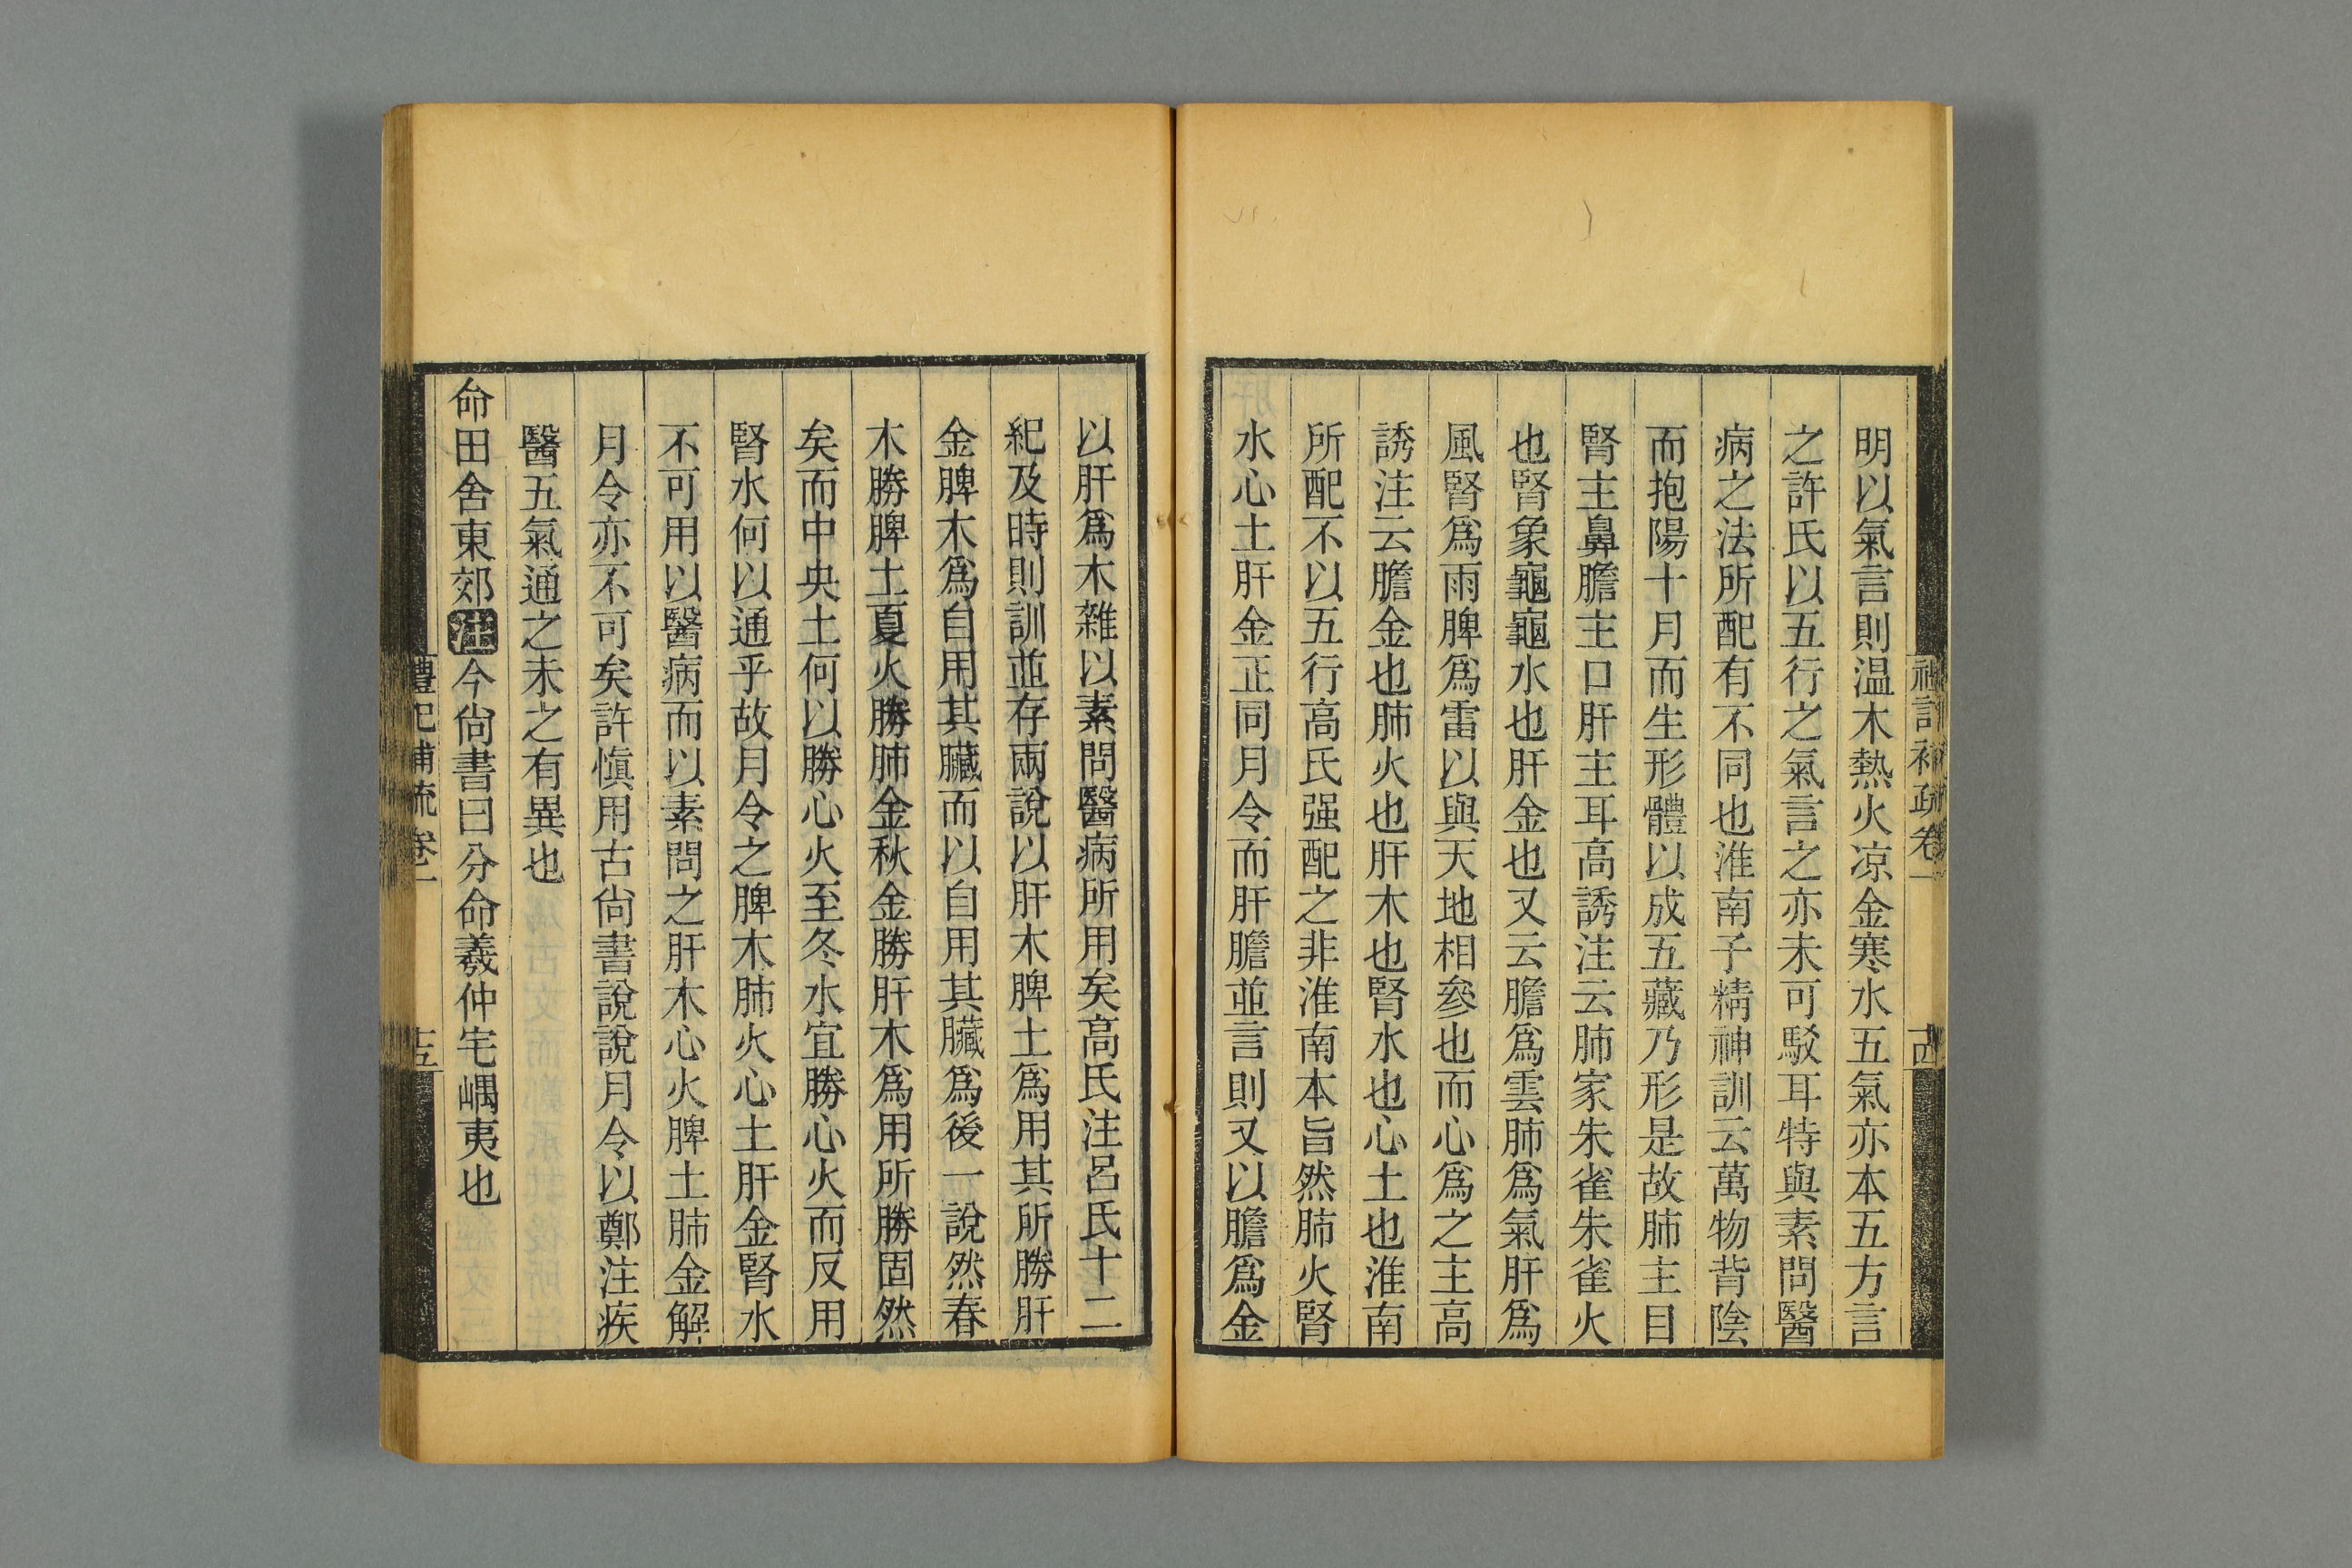 明以氣言則温木熱火凉金寒水五氣亦本五方言
之許氏以五行之氣言之亦未可駁耳特與素問醫
病之法所配有不同也淮南子精神訓云萬物背陰
而抱陽十月而生形體以成五藏乃形是故肺主目
腎主鼻膽主口肝主耳高誘注云肺家朱雀朱雀火
也腎象龜龜水也肝金也又云膽爲雲肺爲氣肝爲
風腎爲雨脾爲雷以與天地相參也而心爲之主高
誘注云膽金也肺火也肝木也腎水也心土也淮南
所配不以五行高氏强配之非淮南本旨然肺火腎
水心土肝金正同月令而肝膽並言則又以膽爲金
以肝爲木雜以素問醫病所用矣高氏注呂氏十二
紀及時則訓並存兩說以肝木脾土爲用其所勝肝
金脾木爲自用其臟而以自用其臟爲後一說然春
木勝脾土夏火勝肺金秋金勝肝木爲用所勝固然
矣而中央土何以勝心火至冬水宜勝心火而反用
腎水何以通乎故月令之脾木肺火心土肝金腎水
不可用以醫病而以素問之肝木心火脾土肺金解
月令亦不可矣許慎用古尙書說說月令以鄭注疾
醫五氣通之未之有異也
命田舍東郊注今尙書曰分命羲仲宅嵎夷也
禮記補疏卷一
十五